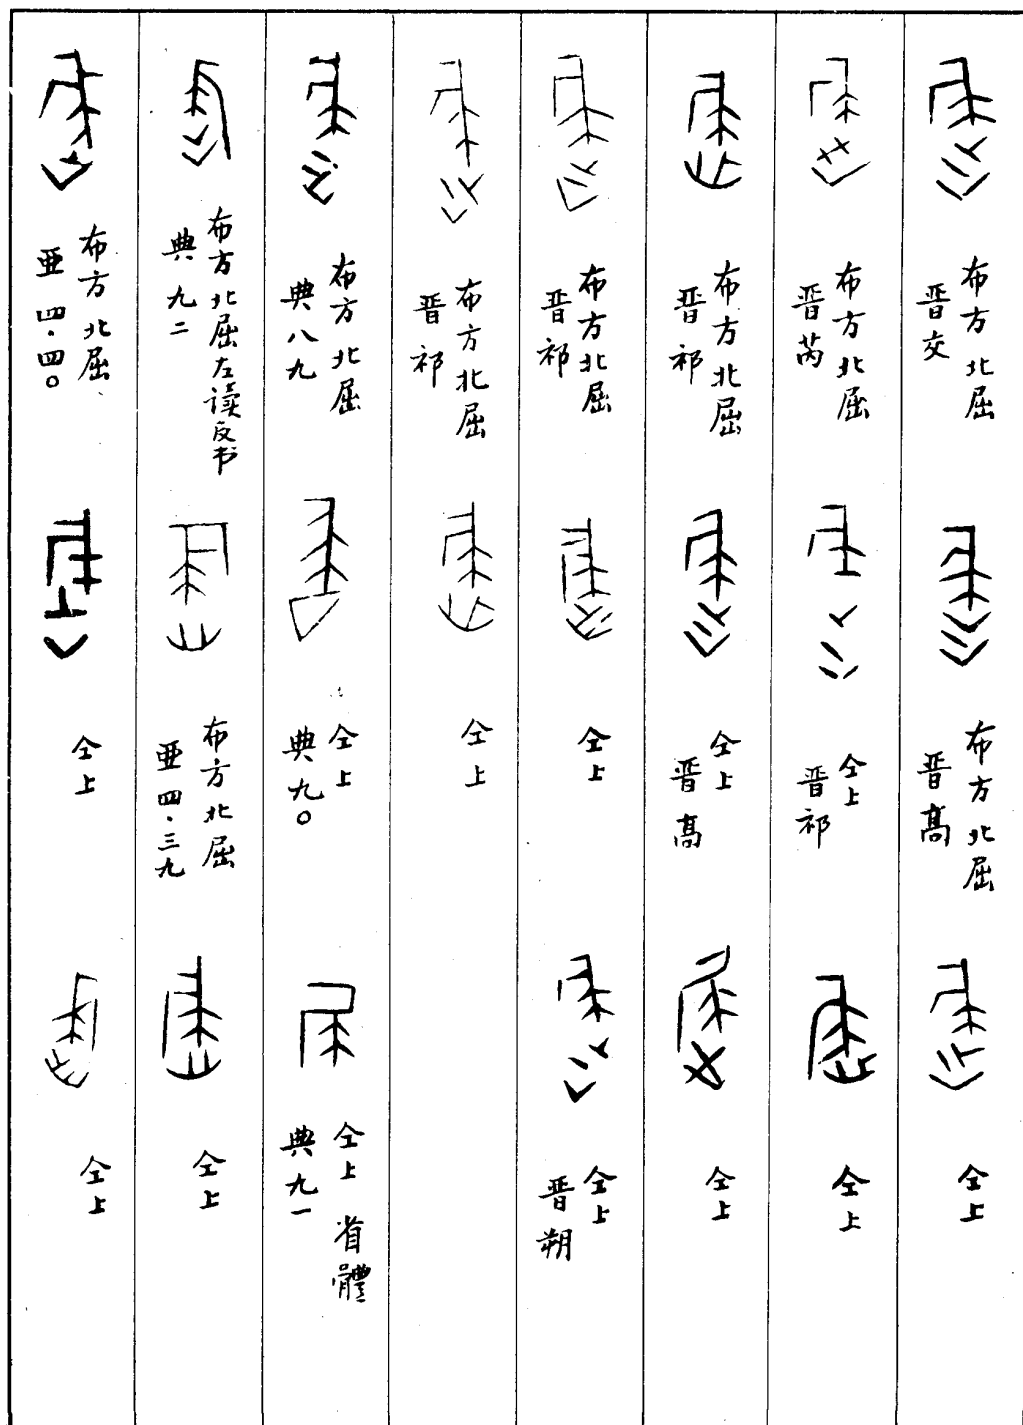 布方北屈
晋交
布方北屈
晋高
仝上
布方北屈
晋芮
仝上
晋祁
仝上
布方北屈
晋祁
仝上
晋高
仝上
布方北屈
晋祁
仝上
仝上
晋朔
布方北屈
晋祁
仝上
布方北屈
典八九
仝上
典九〇
仝上 省體
典九一
布方北屈左读反书
典九二
布方北屈
亜四·三九
仝上
布方北屈
亜四·四〇
仝上
仝上